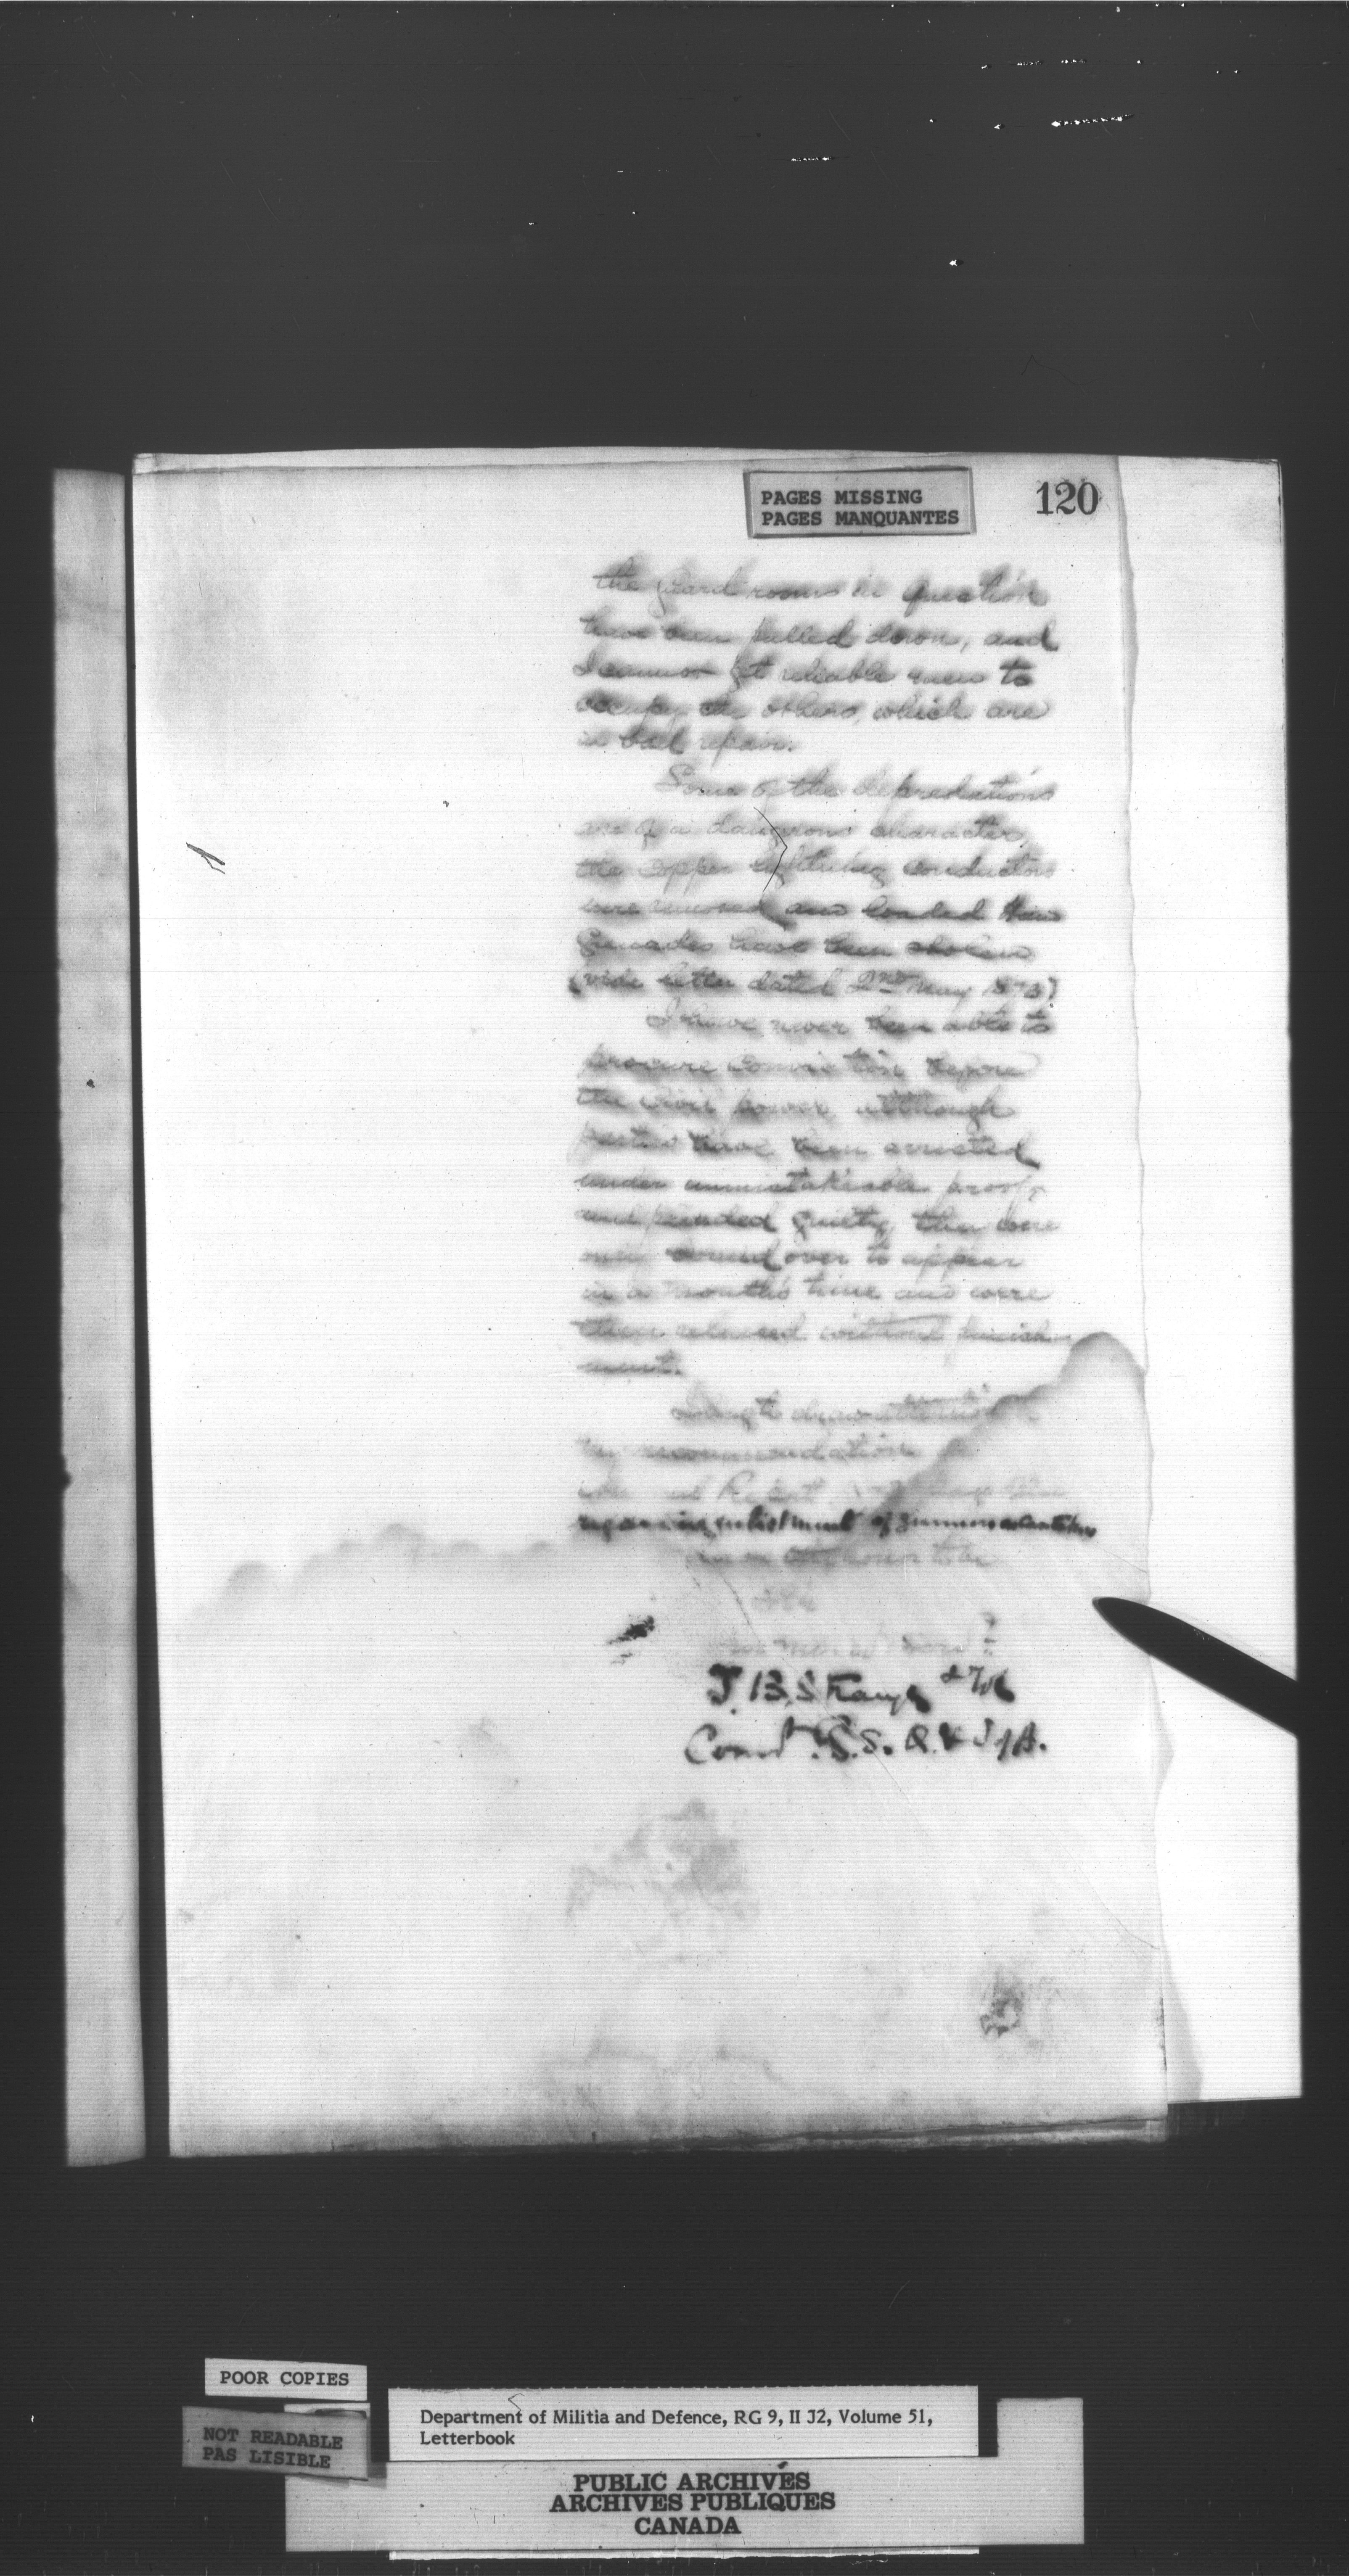 PAGES MISSING
PAGES MANQUANTES
120
the guard rooms in question
have been pulled down, and
I cannot get reliable men to
occupy the others, which are
in bad repair.
Some of the depredations
are of a dangerous character,
the copper lightning conductors
were removed and loaded
Grenades have been stolen
(vide letter dated 2nd May 1873)
I have never been able to
procure conviction before
the Civil power, although
parties have been arrested
under unmistakeable proofs
and pleaded guilty, they were
only bound over to appear
in a month's time and were
then released without punish-
ment.
I beg to draw attention
my recommendation
Report
regarding enlistment of gunners
honor to be
T. B. Strange
Comdt. S.
POOR COPIES
NOT READABLE
PAS LISIBLE
Department of Militia and Defence, RG 9, II J2, Volume 51,
Letterbook
PUBLIC ARCHIVES
ARCHIVES PUBLIQUES
CANADA